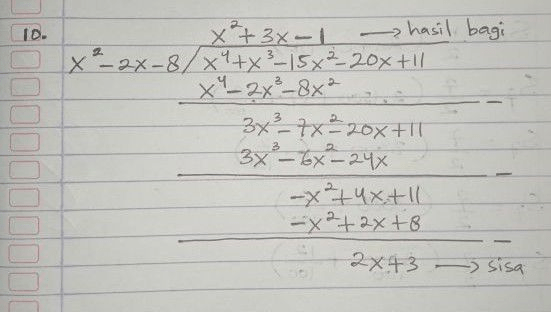 10. x² + 3x - 1 → hasil bagi
x² - 2x - 8 / x⁴ + x³ - 15x² - 20x + 11
x⁴ - 2x³ - 8x² -
3x³ - 7x² - 20x + 11
3x³ - 6x² - 24x -
-x² + 4x + 11
-x² + 2x + 8 -
2x + 3 → sisa